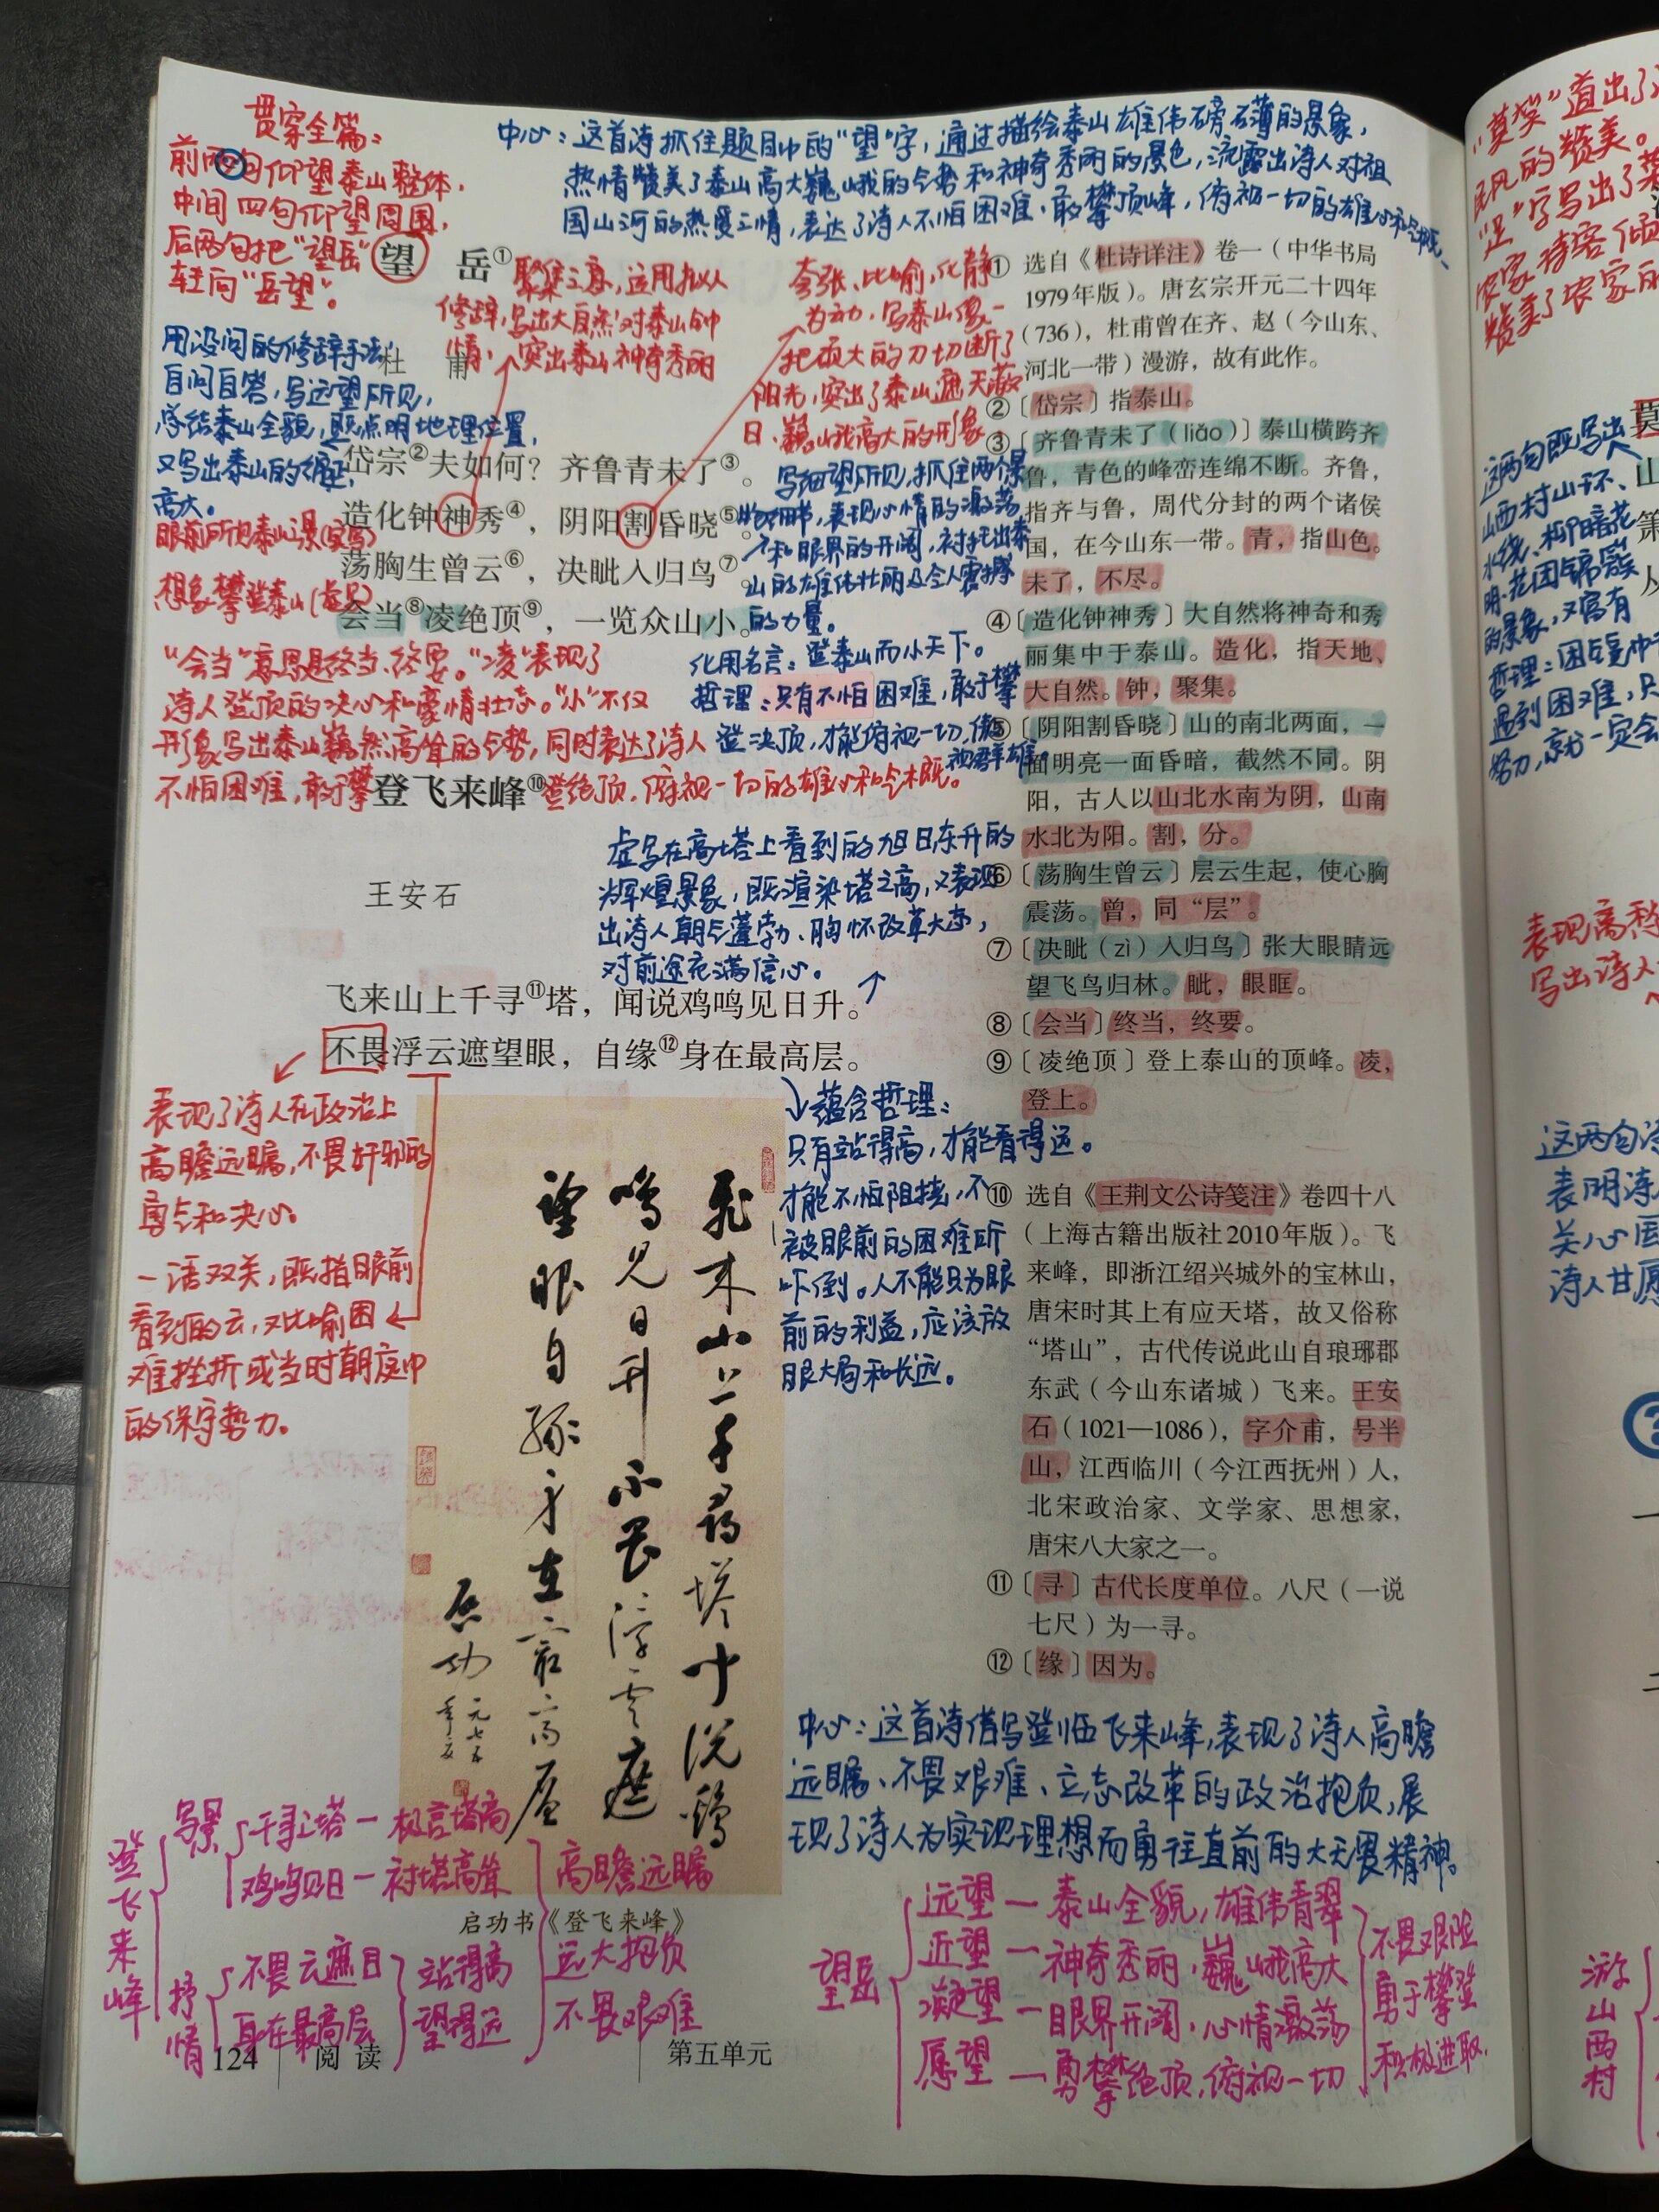 贯穿全篇：
前两句仰望泰山整体，
中间四句仰望周围，
后两句把“望岳”
转向“岳望”。
中心：这首诗抓住题目中的“望”字，通过描绘泰山雄伟磅礴的景象，
热情赞美了泰山高大巍峨的气势和神奇秀丽的景色，流露出诗人对祖
国山河的热爱之情，表达了诗人不怕困难、敢攀顶峰，俯视一切的雄心和气概、
望 岳①
聚集之意，运用拟人
修辞，写出大自然对泰山钟
情，突出泰山神奇秀丽
夸张、比喻，化静
为动，写泰山像一
把硕大的刀切断了
阳光，突出了泰山遮天蔽
日、巍峨高大的形象
杜 甫
用设问的修辞手法，
自问自答，写远望所见，
总结泰山全貌，既点明地理位置，
又写出泰山的绵延，
高大。
岱宗②夫如何？齐鲁青未了③。
造化钟神秀④，阴阳割昏晓⑤。
荡胸生曾云⑥，决眦入归鸟⑦。
会当⑧凌绝顶⑨，一览众山小。
眼前所见泰山之景（实写）
想象攀登泰山（虚写）
写细望所见，抓住两个景
物细节，表现心情的激荡
和眼界的开阔，衬托出泰
山的雄伟壮丽及令人震撼
的力量。
化用名言：登泰山而小天下。
哲理：只有不怕困难，敢于攀
登决顶，才能俯视一切，傲
视群雄。
“会当”意思是终当、终要。“凌”表现了
诗人登顶的决心和豪情壮志。“小”不仅
形象写出泰山巍然高耸的气势，同时表达了诗人
不怕困难，敢于攀登绝顶，俯视一切的雄心和气概。
登飞来峰⑩
王安石
虚写在高塔上看到的旭日东升的
辉煌景象，既渲染塔之高，又表现
出诗人朝气蓬勃、胸怀改革大志，
对前途充满信心。
飞来山上千寻⑪塔，闻说鸡鸣见日升。
不畏浮云遮望眼，自缘⑫身在最高层。
表现了诗人在政治上
高瞻远瞩，不畏奸邪的
勇气和决心。
一语双关，既指眼前
看到的云，又比喻困
难挫折或当时朝庭中
的保守势力。
蕴含哲理：
只有站得高，才能看得远。
才能不怕阻挠，不
被眼前的困难所
吓倒。人不能只为眼
前的利益，应该放
眼大局和长远。
飞来山上千寻塔闻说鸡
鸣见日升不畏浮云遮
望眼自缘身在最高层
启功
一九七五年
启功书《登飞来峰》
① 选自《杜诗详注》卷一（中华书局
1979年版）。唐玄宗开元二十四年
（736），杜甫曾在齐、赵（今山东、
河北一带）漫游，故有此作。
②〔岱宗〕指泰山。
③〔齐鲁青未了（liǎo）〕泰山横跨齐
鲁，青色的峰峦连绵不断。齐鲁，
指齐与鲁，周代分封的两个诸侯
国，在今山东一带。青，指山色。
未了，不尽。
④〔造化钟神秀〕大自然将神奇和秀
丽集中于泰山。造化，指天地、
大自然。钟，聚集。
⑤〔阴阳割昏晓〕山的南北两面，一
面明亮一面昏暗，截然不同。阴
阳，古人以山北水南为阴，山南
水北为阳。割，分。
⑥〔荡胸生曾云〕层云生起，使心胸
震荡。曾，同“层”。
⑦〔决眦（zì）入归鸟〕张大眼睛远
望飞鸟归林。眦，眼眶。
⑧〔会当〕终当，终要。
⑨〔凌绝顶〕登上泰山的顶峰。凌，
登上。
⑩ 选自《王荆文公诗笺注》卷四十八
（上海古籍出版社2010年版）。飞
来峰，即浙江绍兴城外的宝林山，
唐宋时其上有应天塔，故又俗称
“塔山”，古代传说此山自琅琊郡
东武（今山东诸城）飞来。王安
石（1021—1086），字介甫，号半
山，江西临川（今江西抚州）人，
北宋政治家、文学家、思想家，
唐宋八大家之一。
⑪〔寻〕古代长度单位。八尺（一说
七尺）为一寻。
⑫〔缘〕因为。
中心：这首诗借写登临飞来峰，表现了诗人高瞻
远瞩、不畏艰难、立志改革的政治抱负，展
现了诗人为实现理想而勇往直前的大无畏精神。
登飞来峰
写景
千寻塔—极言塔高
鸡鸣见日—衬塔高耸
抒情
不畏云遮目
身在最高层
站得高
望得远
高瞻远瞩
远大抱负
不畏艰难
望岳
远望—泰山全貌，雄伟青翠
近望—神奇秀丽，巍峨高大
凝望—眼界开阔，心情激荡
愿望—勇攀绝顶，俯视一切
不畏艰险
勇于攀登
积极进取.
124 阅 读
第五单元
“莫笑”道出了
民风的赞美。
“足”字写出了
农家待客倾
赞美了农家的
莫
山
箫
从
这两句既写出
山西村山环、
水绕、柳暗花
明、花团锦簇
的景象，又富有
哲理：困境中
遇到困难，只
努力，就一定会
表现离愁
写出诗人
这两句诗
表明诗
关心国
诗人甘愿
游山西村